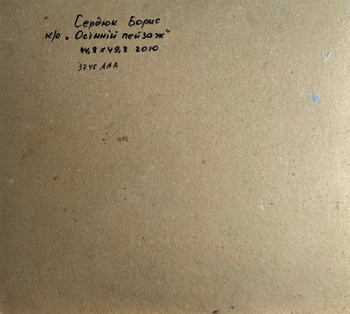 Сердюк Борис
к/о „Осінній пейзаж"
44,8 х 49,3 2010
3745 ААА